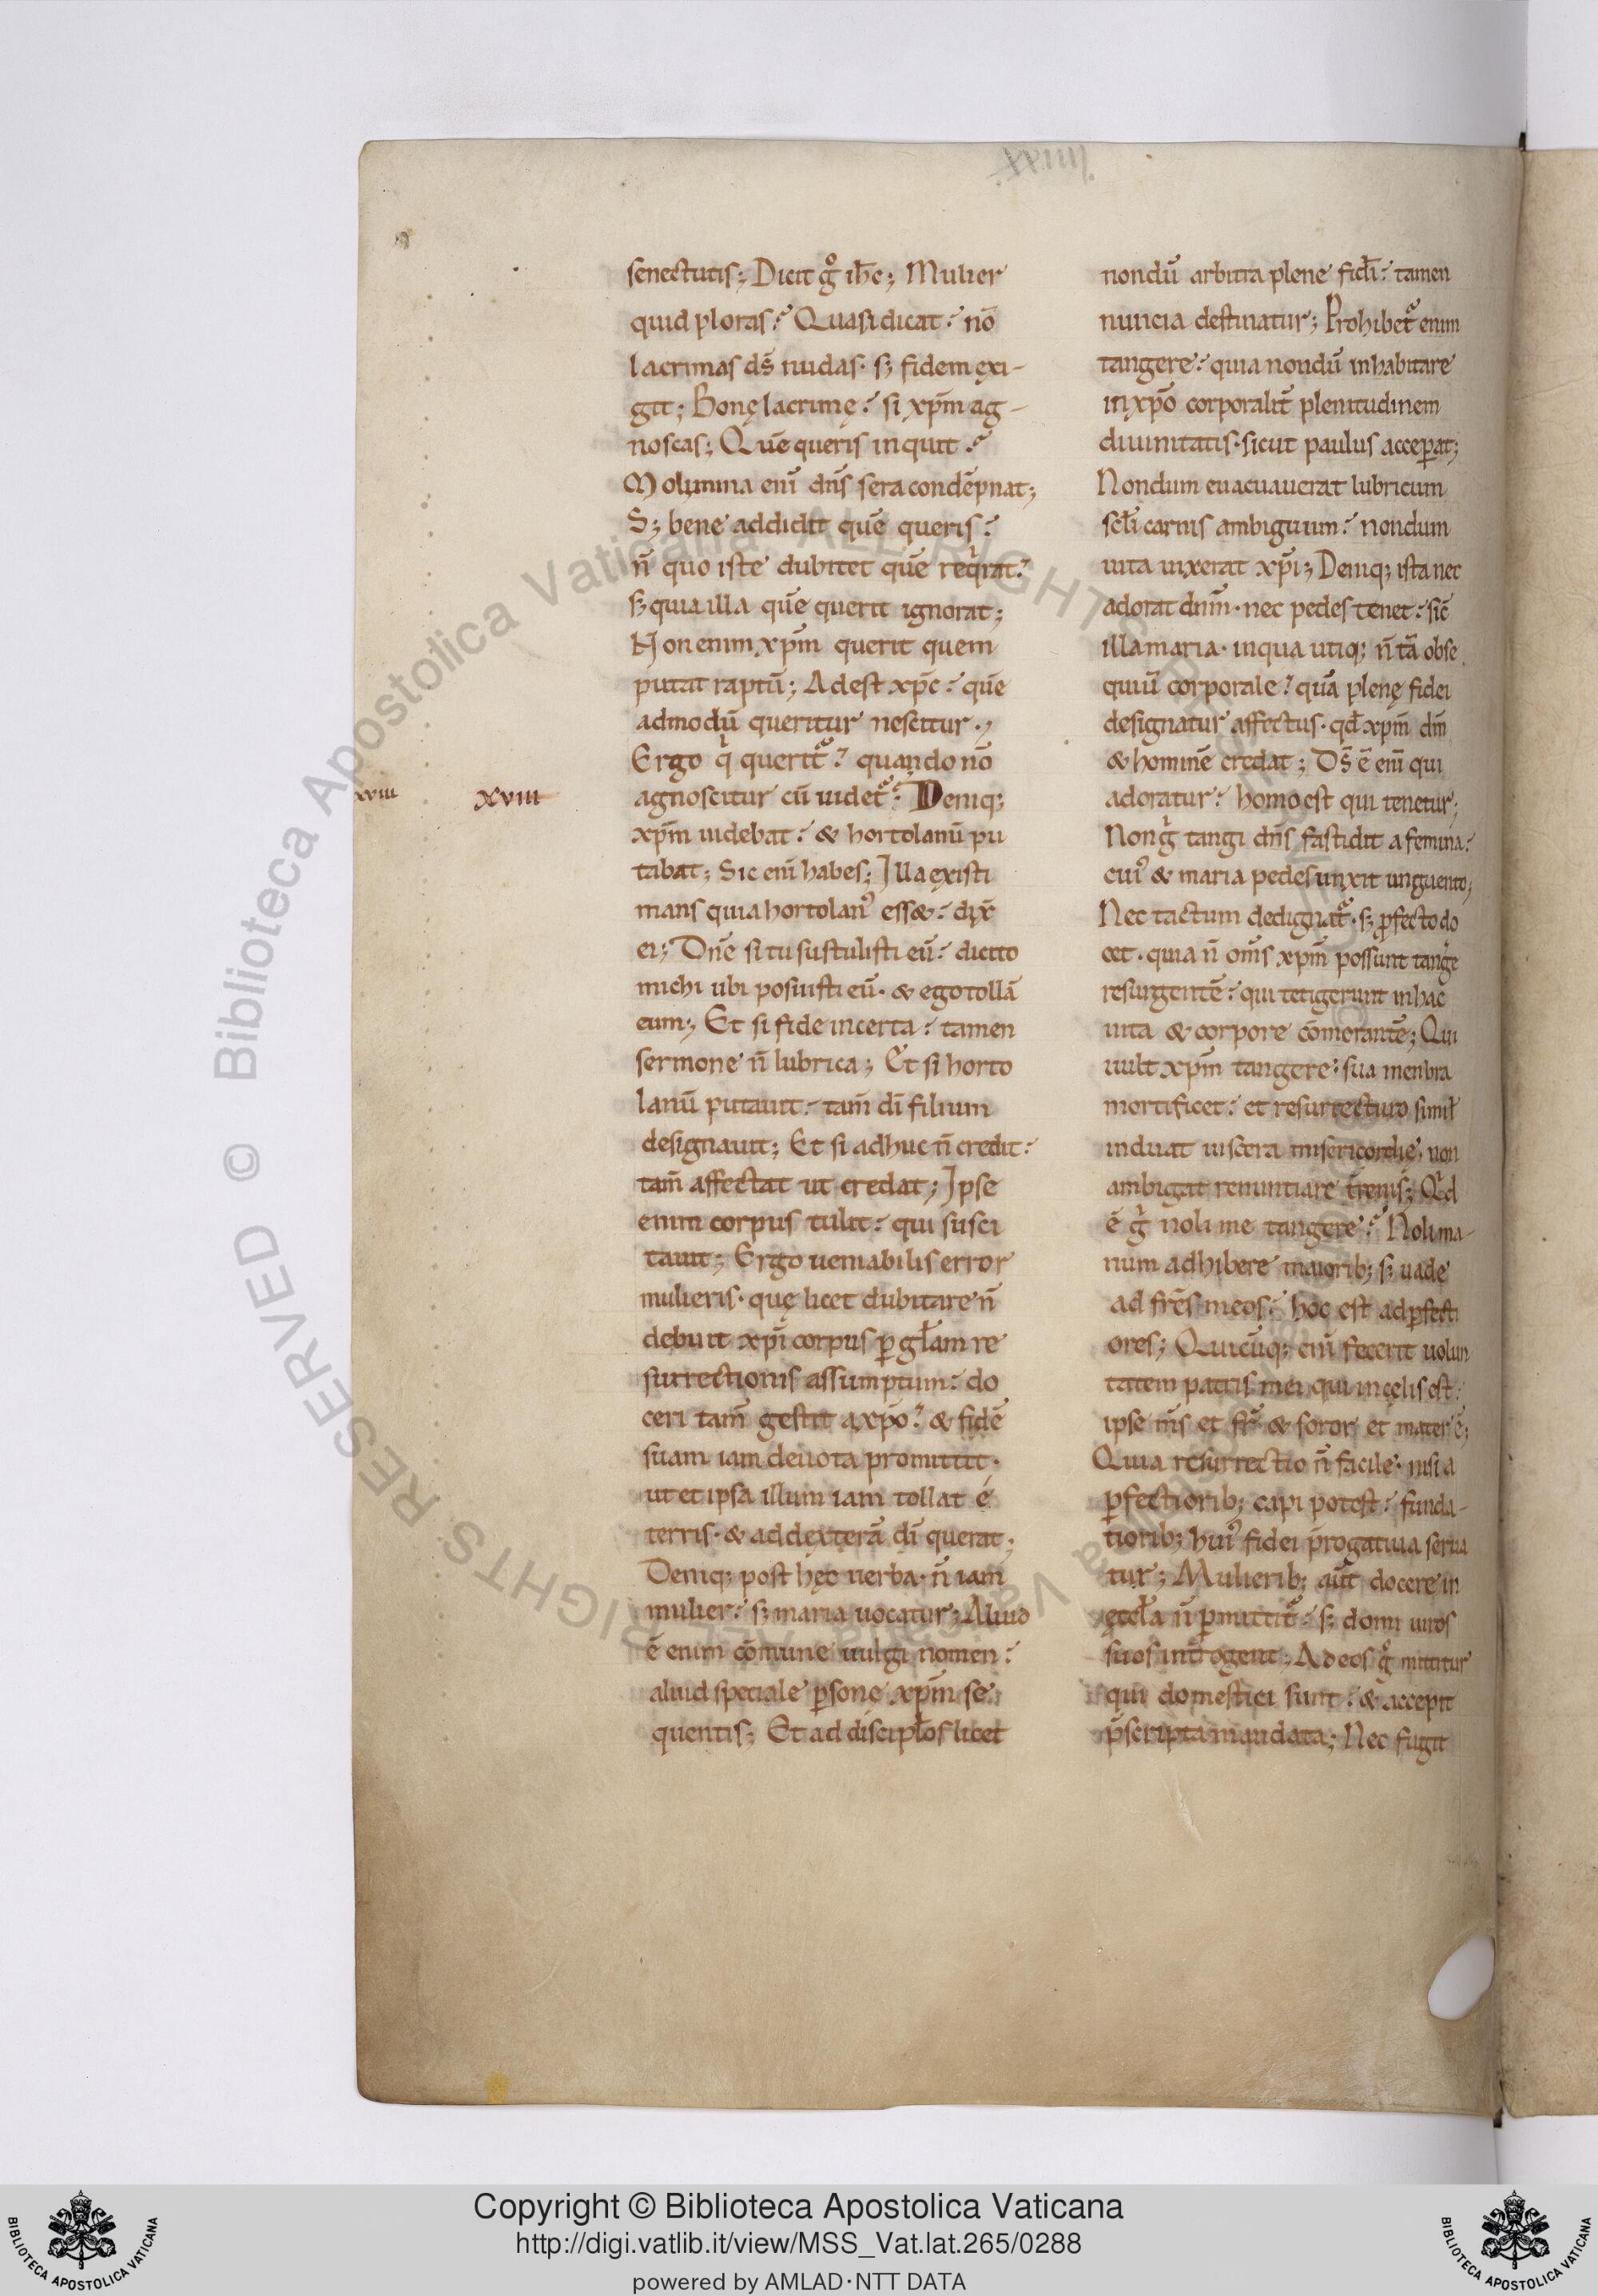 .xxiiii.
senectutis; Dicit g̊ ih̅c; Mulier
quid ploras? Quasi dicat? nō
lacrimas ds̄ nudas· s; fidem exi-
git; Bonę lacrimę? si xp̄m ag-
noscas; Quē queris inquit?
Molumina enī dn̄s sera condēpnat;
S; bene addidit quē queris?
n̄ quo iste dubitet quē reqͥrat?
s; quia illa quē querit ignorat;
Non enim xp̄m querit quem
putat raptū; Adest xp̄c? quē
admodū queritur nescitur.,
Ergo qͥ querit᷑? quando nō
xviii
xviii
agnoscitur cū uidet᷑? Deniq;
xp̄m uidebat? & hortolanū pu
tabat; Sic enī habes; Illa existi
mans quia hortolanꝰ ess&? dix̄
ei; Dn̄e si tu sustulisti eū? dicito
michi ubi posuisti eū· & ego tollā
eum; Et si fide incerta? tamen
sermone n̄ lubrica; Et si horto
lanū putauit? tam̄ dī filium
designauit; Et si adhuc n̄ credit?
tam̄ affectat ut credat; Ipse
enim corpus tulit? qui susci
tauit; Ergo ueniabilis error
mulieris· quę licet dubitare n̄
debuit xp̄i corpus ꝑ gl̄am re
surrectionis assumptum? do
ceri tam̄ gestit a xp̄o? & fidē
suam iam deuota promittit·
ut et ipsa illum iam tollat é
terris· & ad dexterā dī querat;
Deniq; post hęc uerba· n̄ iam
mulier? s; maria uocatur; Aliud
ē enim cōmune uulgi nomen?
aliud speciale ꝑsonę xp̄m se
quentis; Et ad discipl̄os licet
nondū arbitra plene fidī? tamen
nuncia destinatur; Prohibet᷑ enim
tangere? quia nondū inhabitare
in xp̄o corporalit̄ plenitudinem
diuinitatis· sicut paulus acceꝑat;
Nondum euacuauerat lubricum
scl̄i carnis ambiguum? nondum
uita uixerat xp̄i; Deniq; ista nec
adorat dnm̄· nec pedes tenet? sic̄
illa maria· in qua utiq; n̄ tā obse
quiū corporale? quā plenę fidei
designatur affectus· qd̄ xp̄m dm̄
& hominē credat; Ds̄ ē enī qui
adoratur? homo est qui tenetur;
Non gͥ tangi dn̄s fastidit a femina?
cuiꝰ & maria pedes unxit unguento;
Nec tactum dedignat᷑· s; ꝓfecto do
cet· quia n̄ om̄s xp̄m possunt tangē
resurgentē? qui tetigerunt in hac
uita & corpore cōmorantē; Qui
uult xp̄m tangere? sua menbra
mortificet? et resurrecturo simil̄
induat uiscera misericordię· non
ambigat renuntiare t̄renis; Qͥd
ē gͥ noli me tangere? Noli ma-
num adhibere maiorib; s; uade
ad fr̄es meos? hoc est ad ꝑfecti
ores; Quicūq; enī fecerit uolun
tatem patris mei qui in cęlis est?
ipse m̄s et fr̄ & soror et mater ē;
Quia resurrectio n̄ facile· nisi a
ꝑfectiorib; capi potest? funda-
tiorib; huiꝰ fidei p̄rogatiua serua
tur; Mulierib; aūt docere in
ęccl̄a n̄ ꝑmittit᷑? s; domi uiros
suos int̄rogent; Ad eos g̊ mittitur
qui domestici sunt? & accepit
p̄scripta mandata; Nec fugit
© Biblioteca Apostolica Vaticana ALL RIGHTS RESERVED
Copyright © Biblioteca Apostolica Vaticana
http://digi.vatlib.it/view/MSS_Vat.lat.265/0288
powered by AMLAD·NTT DATA
BIBLIOTECA APOSTOLICA VATICANA
BIBLIOTECA APOSTOLICA VATICANA